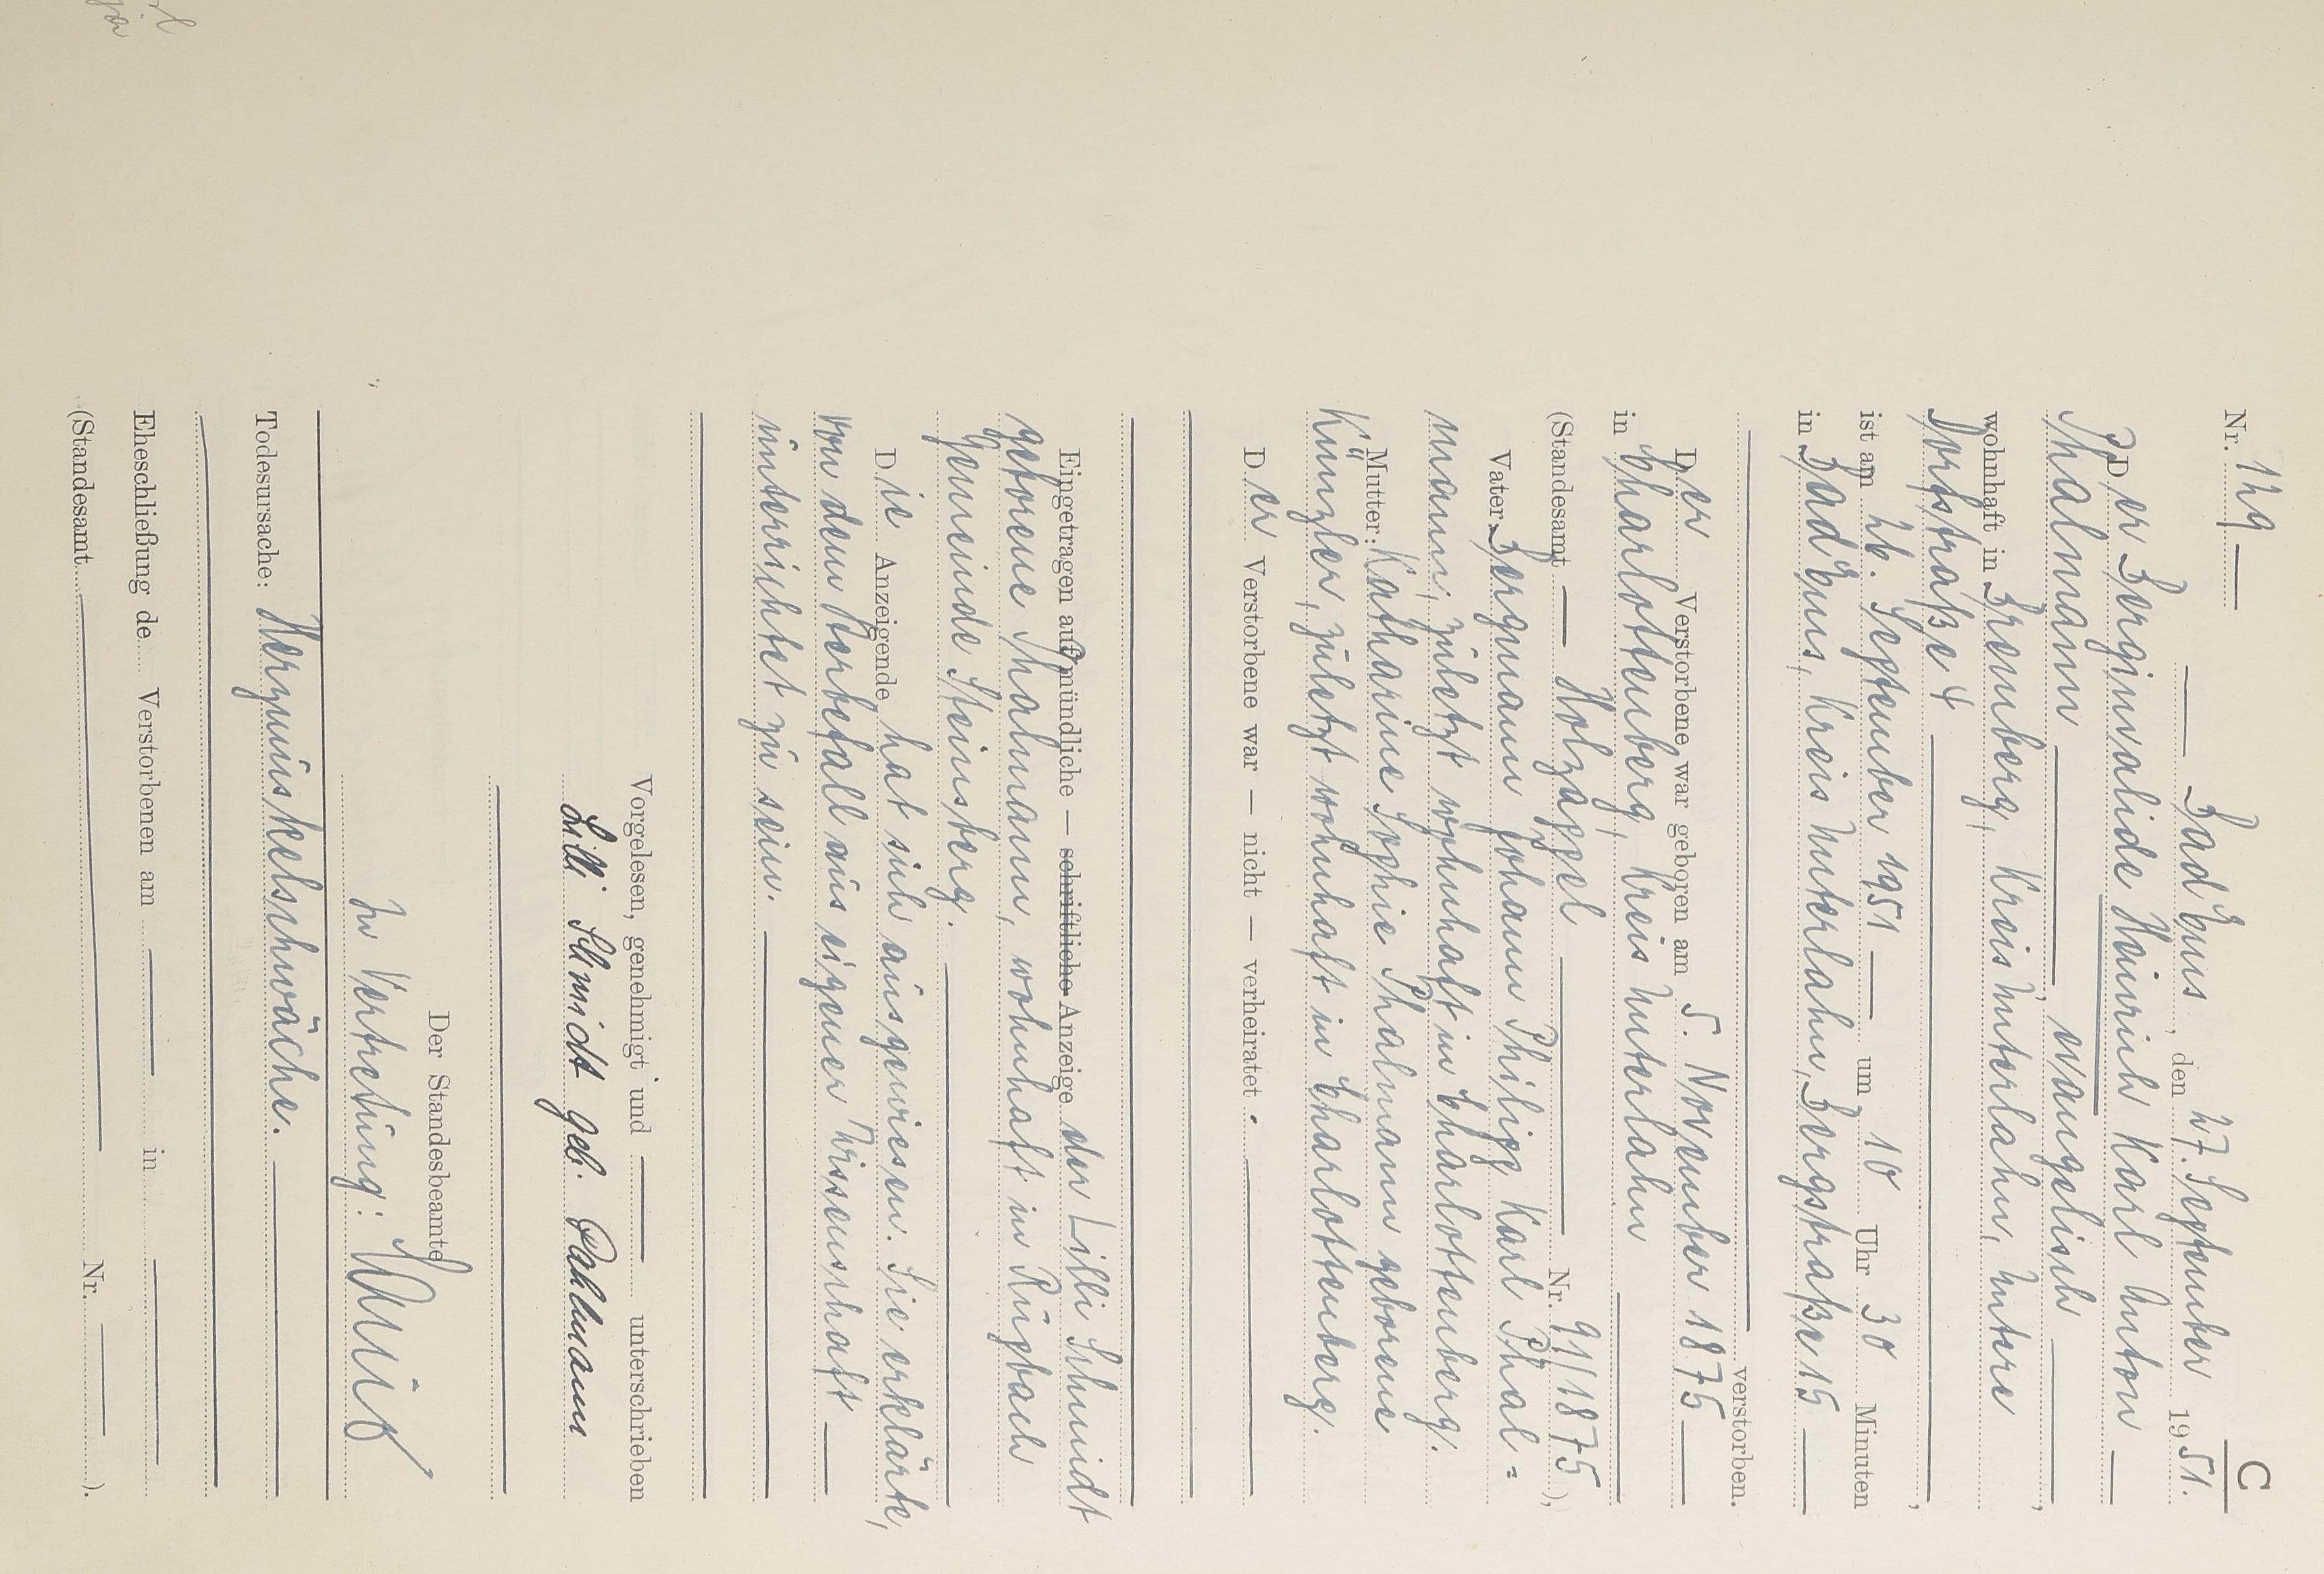 C
Nr. 129 —
— Bad Ems, den 27. September 1951.
Der Berginvalide Heinrich Karl Anton —
Phalmann —, evangelisch —,
wohnhaft in Bremberg, Kreis Unterlahn, Untere
Dorfstraße 4 —,
ist am 26. September 1951 — um 10 Uhr 30 Minuten
in Bad Ems, Kreis Unterlahn, Bergstraße 15 —
— verstorben.
Der Verstorbene war geboren am 5. November 1875 —
in Charlottenberg, Kreis Unterlahn —
(Standesamt — Holzappel — Nr. 91/1875),
Vater: Bergmann Johann Philipp Karl Phal=
mann, zuletzt wohnhaft in Charlottenberg.
Mutter: Katharine Sophie Phalmann geborene
Künzler, zuletzt wohnhaft in Charlottenberg.
Der Verstorbene war — nicht — verheiratet . —
Eingetragen auf mündliche — schriftliche Anzeige der Lilli Schmidt
geborene Phalmann, wohnhaft in Rupbach
Gemeinde Steinsberg. —
Die Anzeigende hat sich ausgewiesen. Sie erklärte,
von dem Sterbefall aus eigener Wissenschaft —
unterrichtet zu sein. —
Vorgelesen, genehmigt und — unterschrieben
Lilli Schmidt geb. Pahlmann
Der Standesbeamte
In Vertretung:
Todesursache: Herzmuskelschwäche. —
Eheschließung de Verstorbenen am — in —
(Standesamt — Nr. — ).